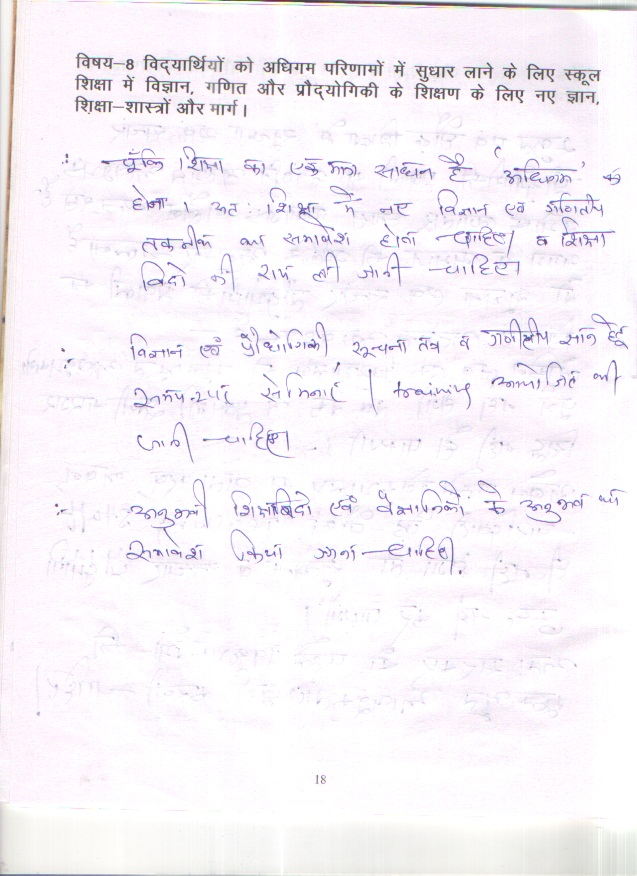 विषय–8 विद्यार्थियों को अधिगम परिणामों में सुधार लाने के लिए स्कूल
शिक्षा में विज्ञान, गणित और प्रौद्योगिकी के शिक्षण के लिए नए ज्ञान,
शिक्षा–शास्त्रों और मार्ग।
चूँकि शिक्षा का एक मात्र साधन है 'अधिगम'
होना। अतः शिक्षा में नए विज्ञान एवं गणितीय
तकनीक का समावेश होना चाहिए व शिक्षा
विदों की राय ली जानी चाहिए।
विज्ञान एवं प्रौद्योगिकी, सूचना तंत्र व गणीतीय ज्ञान हेतु
समय-समय सेमिनार / training आयोजित की
जानी चाहिए।
:- अनुभवी शिक्षाविदो एवं वैज्ञानिकों के अनुभव का
समावेश किया जाना चाहिए.
18